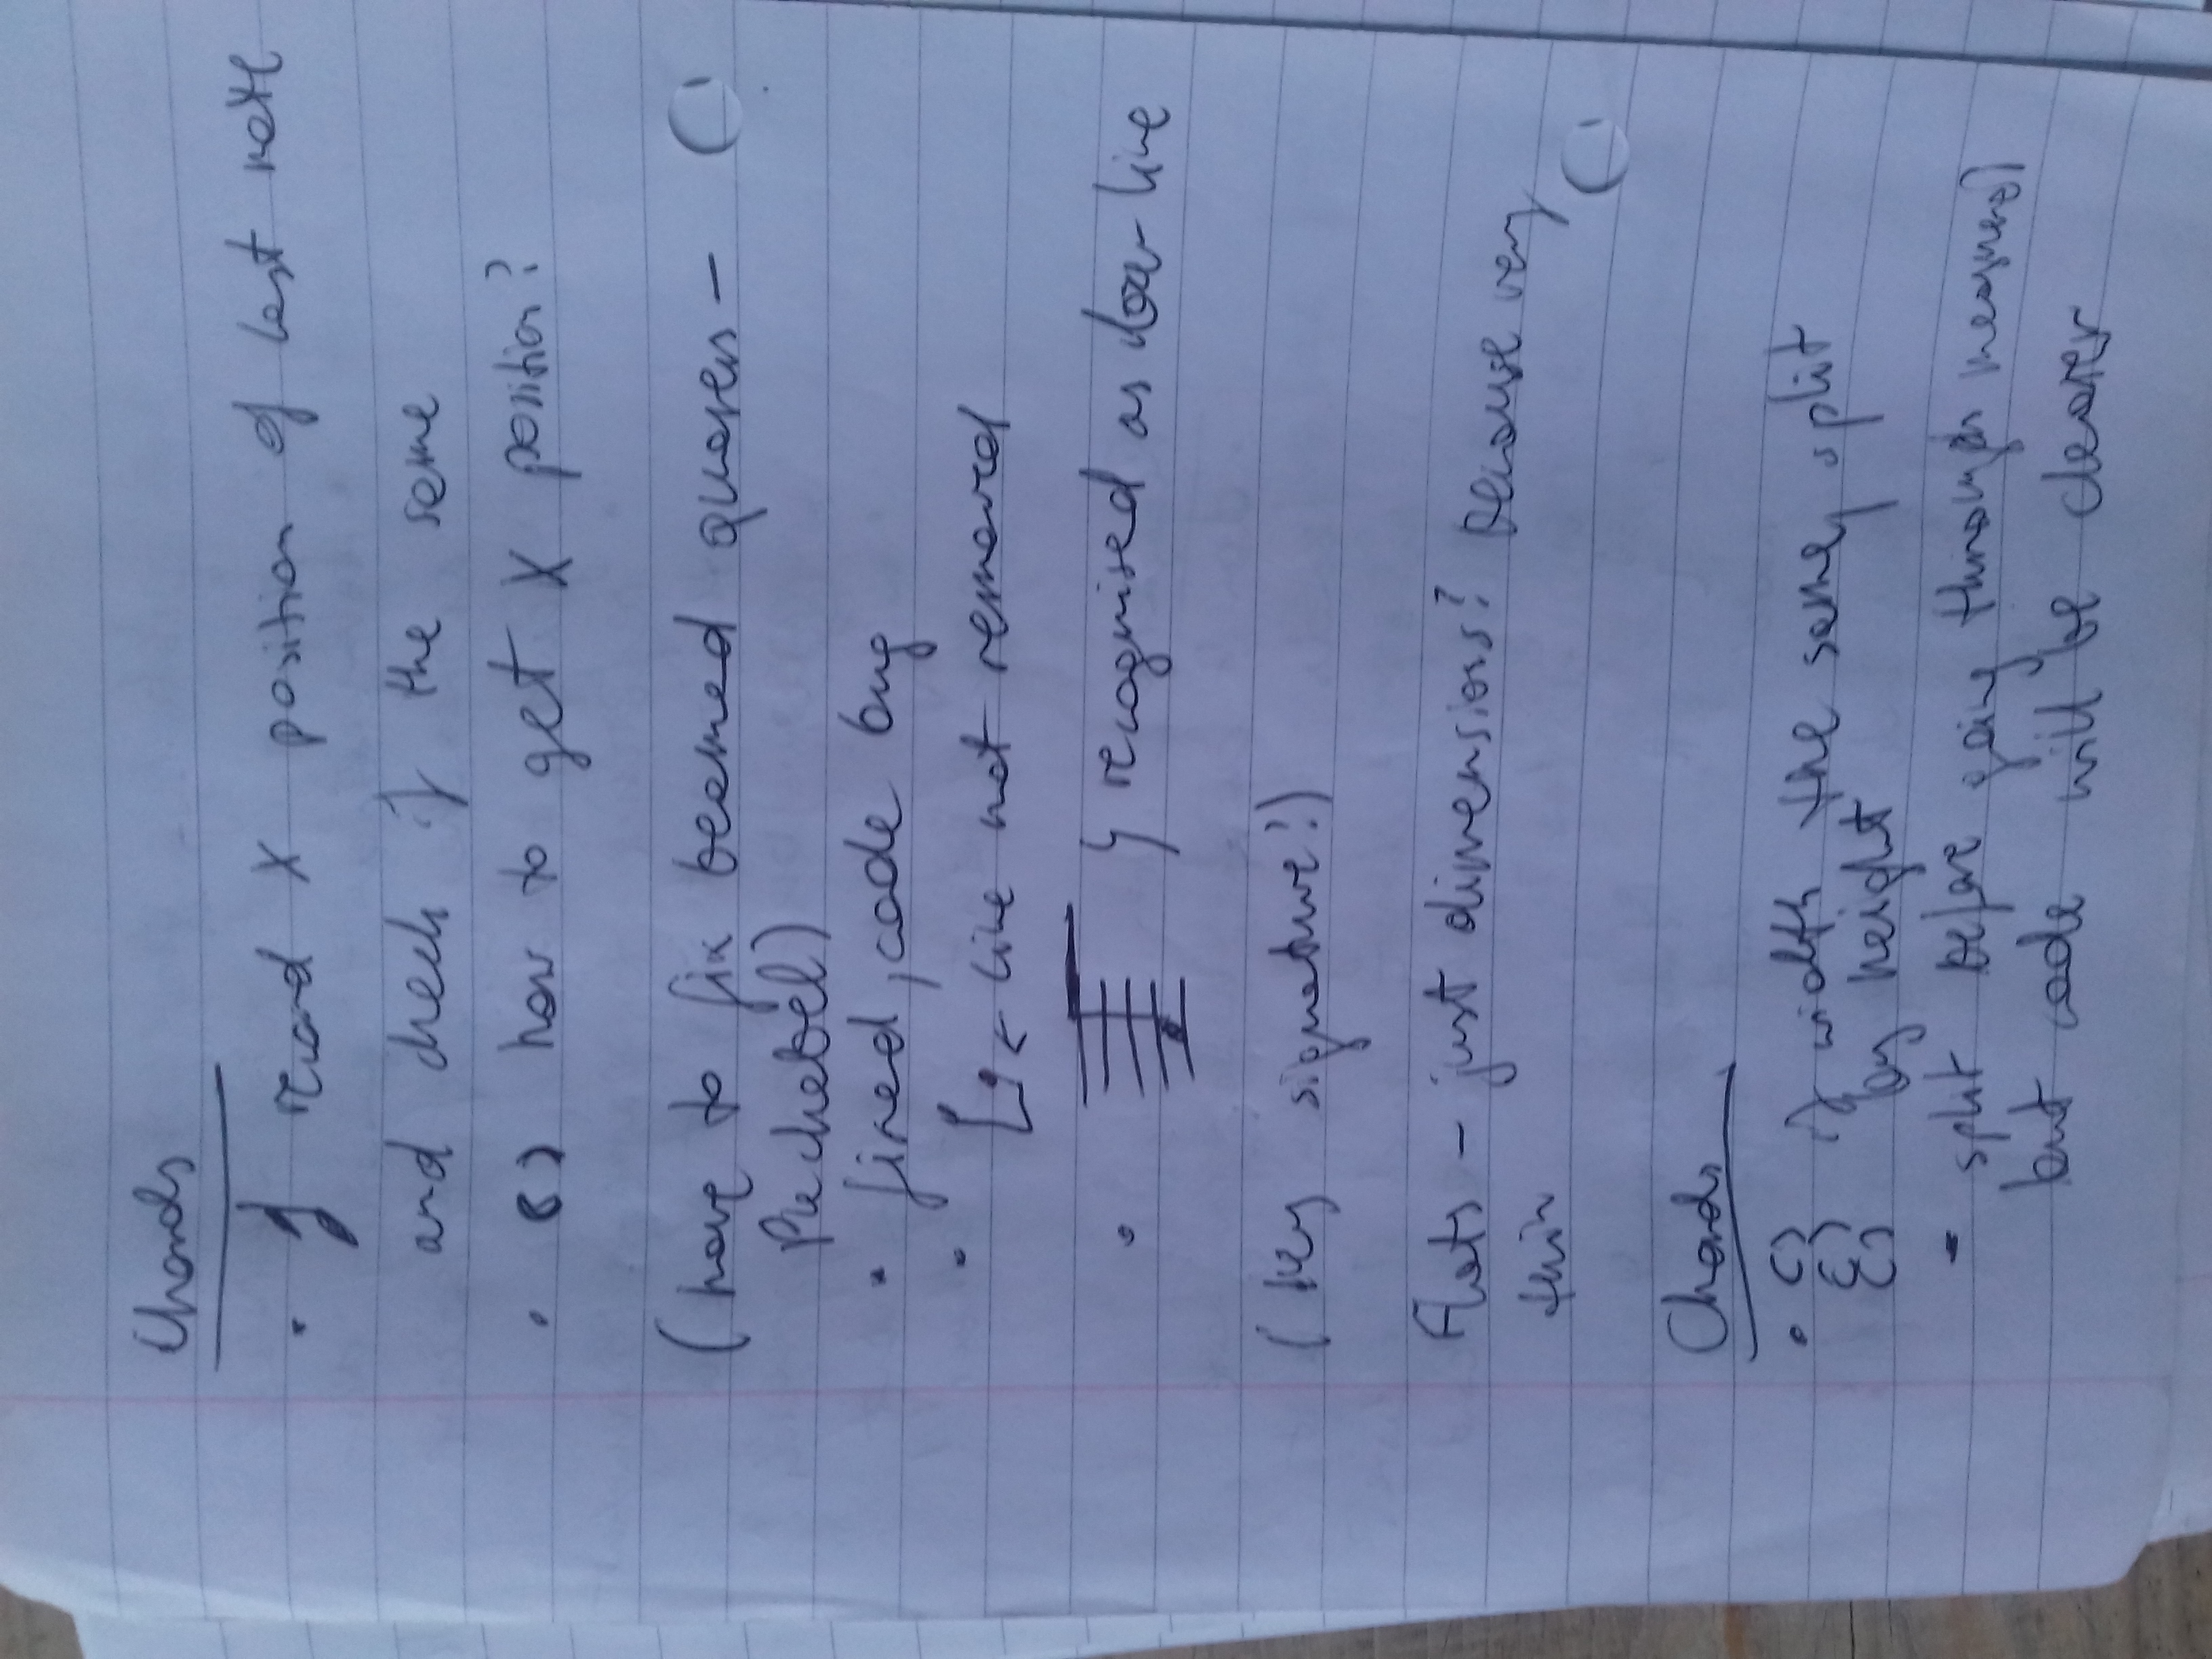 Chords
• record X position of last note
and check if the same
• how to get X position?
(have to fix beamed quavers -
Pachelbel)
• fixed, code bug
• ← line not removed
• recognised as lower line
(key signature?)
Flats - just dimensions? because very
thin
Chords
• if width the same, split
by height
- split before going through
but code will be clearer